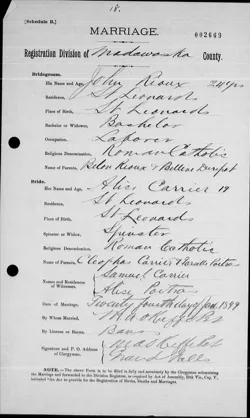 18.
[Schedule B.]
002669
MARRIAGE.
Registration Division of Madawaska County.
Bridegroom.
His Name and Age, John Rioux 24 yrs
Residence, St Leonards
Place of Birth, St Leonards
Bachelor or Widower, Bachelor
Occupation, Laborer
Religious Denomination, Roman Catholic
Rioux &
Bride.
Her Name and Age, Alice Carrier 19
Residence, St Leonards
Place of Birth, St Leonards
Spinster or Widow, Spinster
Religious Denomination, Roman Catholic
Cleophas Carrier
Names and Residences of Witnesses, Samuel Carrier
Alice
Date of Marriage, Twenty fourth day of Jan 1899
By Whom Married,
By License or Banns, Bans
Signature and P. O. Address of Clergyman,
Grand Falls
NOTE.—The above Form is to be filled in fully and accurately by the Clergyman solemnizing
the Marriage and forwarded to the Division Registrar, as required by Act of Assembly, 50th Vic., Cap. V.,
intituled "An Act to provide for the Registration of Births, Deaths and Marriages.